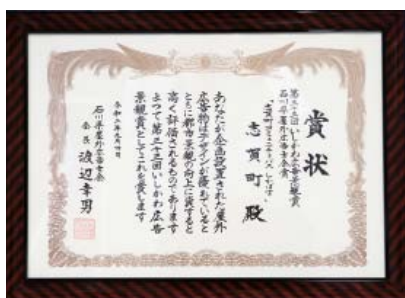 賞状
第三十三回いしかわ広告景観賞
石川県屋外広告士会賞
志賀町 殿
あなたが企画設置された屋外
広告物はデザインが優れていると
ともに都市景観の向上に資すると
高く評価されるものであります
よって第三十三回いしかわ広告
景観賞としてこれを賞します
石川県屋外広告士会
会長 渡辺幸男